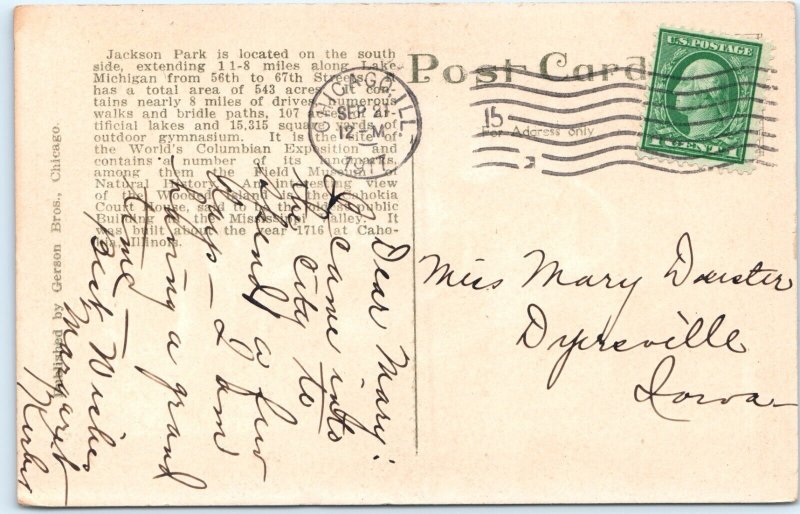 Jackson Park is located on the south
side, extending 1 1-8 miles along Lake
Michigan from 56th to 67th Streets. It
has a total area of 543 acres. It con-
tains nearly 8 miles of drives, numerous
walks and bridle paths, 107 acres of ar-
tificial lakes and 15,315 square yards of
outdoor gymnasium. It is the site of
the World's Columbian Exposition and
contains a number of its landmarks,
among them the Field Museum of
Natural History. An interesting view
of the Wooded Island is the Cahokia
Court House, said to be the first public
Building in the Mississippi Valley. It
was built about the year 1716 at Caho-
kia, Illinois.
Published by Gerson Bros., Chicago.
Post Card
For Address only
CHICAGO, ILL.
SEP 21
12 - M
1917
15
U.S. POSTAGE
1 CENT 1
Dear Mary:
I came into
the city to
spend a few
days - I am
having a grand
time -
Best Wishes
Margaret
Miss Mary
Dyersville
Iowa